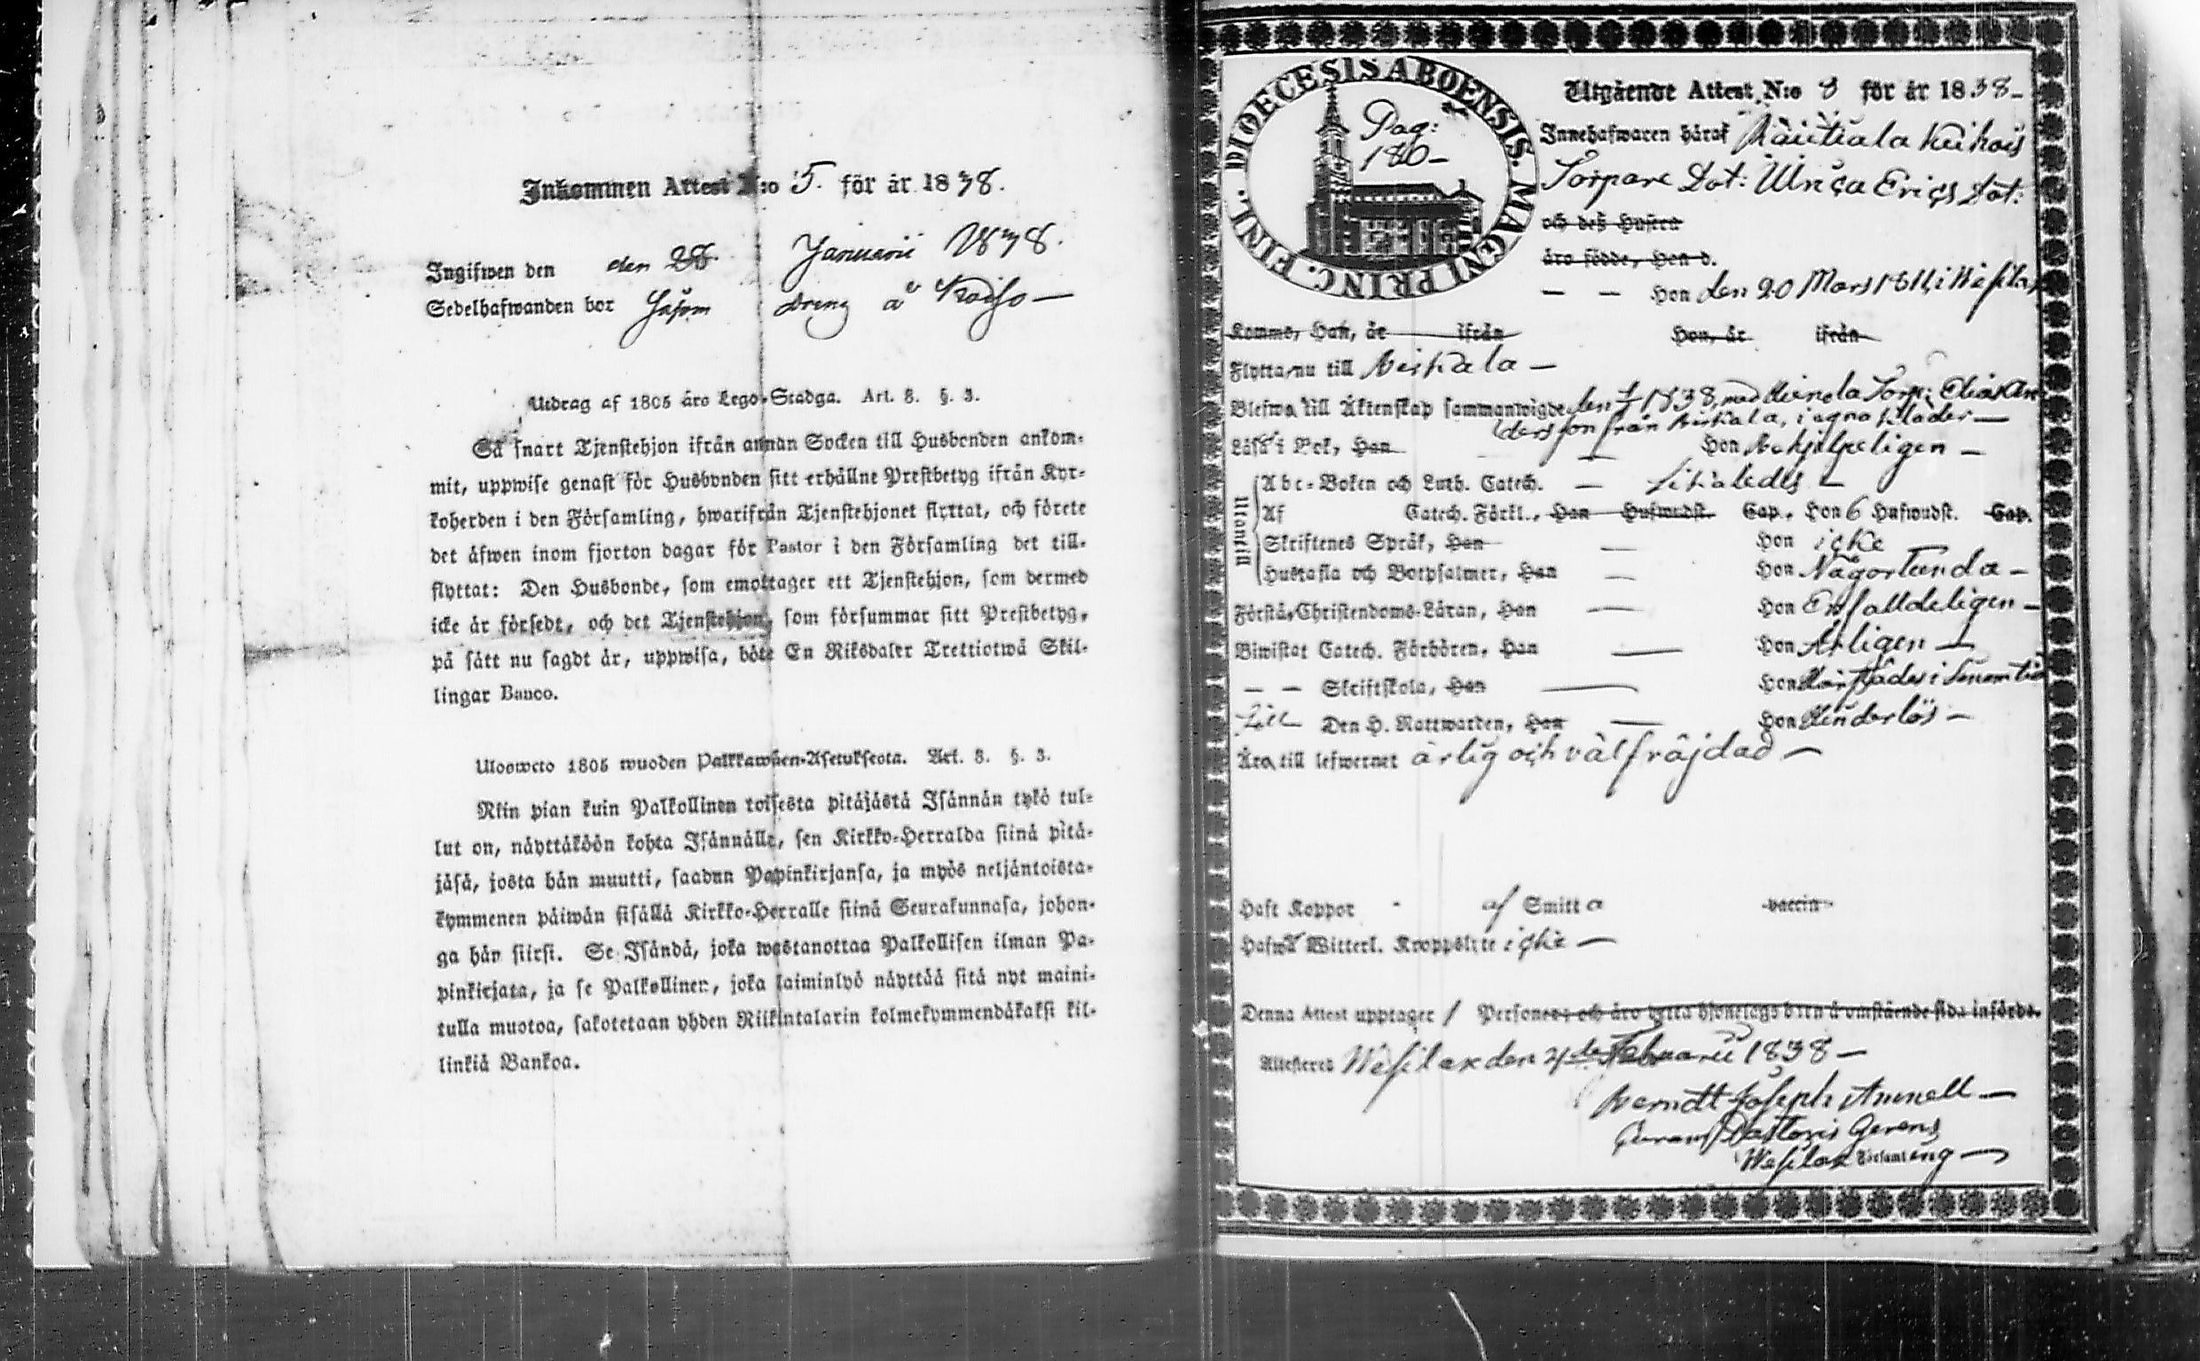 Inkommen Attest N:o 5. för år 1838.
Ingifwen den den 28 Januarii 1838.
Sedelhafwanden bor såsom dreng å
Utdrag af 1805 års Lego-Stadga. Art. 8. §. 3.
Så snart Tjenstehjon ifrån annan Socken till Husbonden ankom-
mit, uppwise genast för Husbonden sitt erhållne Prestbetyg ifrån Kyr-
koherden i den Församling, hwarifrån Tjenstehjonet flyttat, och förete
det äfwen inom fjorton dagar för Pastor i den Församling det till-
flyttat: Den Husbonde, som emottager ett Tjenstehjon, som dermed
icke är försedt, och det Tjenstehjon, som försummar sitt Prestbetyg,
på sätt nu sagdt är, uppwisa, böte En Riksdaler Trettiotwå Skil-
lingar Banco.
Ulosweto 1805 wuoden Palkkawäen-Asetuksesta. Art. 8. §. 3.
Niin pian kuin Palkollinen toisesta pitäjästä Isännän tykö tul-
lut on, näyttäköön kohta Isännälle, sen Kirkko-Herralda siinä pitä-
jäsä, josta hän muutti, saadun Papinkirjansa, ja myös neljäntoista-
kymmenen päiwän sisällä Kirkko-Herralle siinä Seurakunnasa, johon-
ga hän siirsi. Se Isändä, joka wastanottaa Palkollisen ilman Pa-
pinkirjata, ja se Palkollinen, joka laiminlyö näyttää sitä nyt maini-
tulla muotoa, sakotetaan yhden Riikintalarin kolmekymmendäkaksi kil-
linkiä Bankoa.
DIOECESIS ABOENSIS. MAGNI PRINC. FINL.
Pag:
180-
Utgående Attest N:o 3 för år 1838-
Innehafwaren häraf Räikiala
Torpare Dot: Erics Dot:
och deß Hustru
äro födde, Han d.
— — Hon den 20 Mars 1811, i Wesilax
Kommo, Han, år ifrån Hon, år ifrån
Flytta nu till Birkala —
Blefwo till Äktenskap sammanwigde den 1838, med Torp: Elias An
dersson från Birkala, i egna kläder —
Läsa i Bok, Han — Hon Behjelpeligen —
Utantill
Abc-Boken och Luth. Catech. — Likaledes —
Af Catech. Förkl., Han Hufwudst. Cap. Hon 6 Hufwudst. Cap.
Skriftenes Språk, Han — Hon icke —
Hustafla och Botpsalmer, Han — Hon Någorlunda —
Förstå Christendoms-Läran, Han — Hon Enfalldeligen —
Biwistat Catech. Förhören, Han — Hon Årligen —
— — Skriftskola, Han — Hon
till Den H. Nattwarden, Han — Hon Hinderlös —
Äro till lefwernet ärlig och välfräjdad —
Haft Koppor af Smitta vaccin
Hafwa Witterl. Kroppslyte icke —
Denna Attest upptager 1 Personer och äro detta hjonelags barn å omstående sida införde.
Attesteras Wesilax den 4de Februarii 1838 —
Berndt Joseph Annell —
Curam Pastoris Gerens
Wesilax Församling —